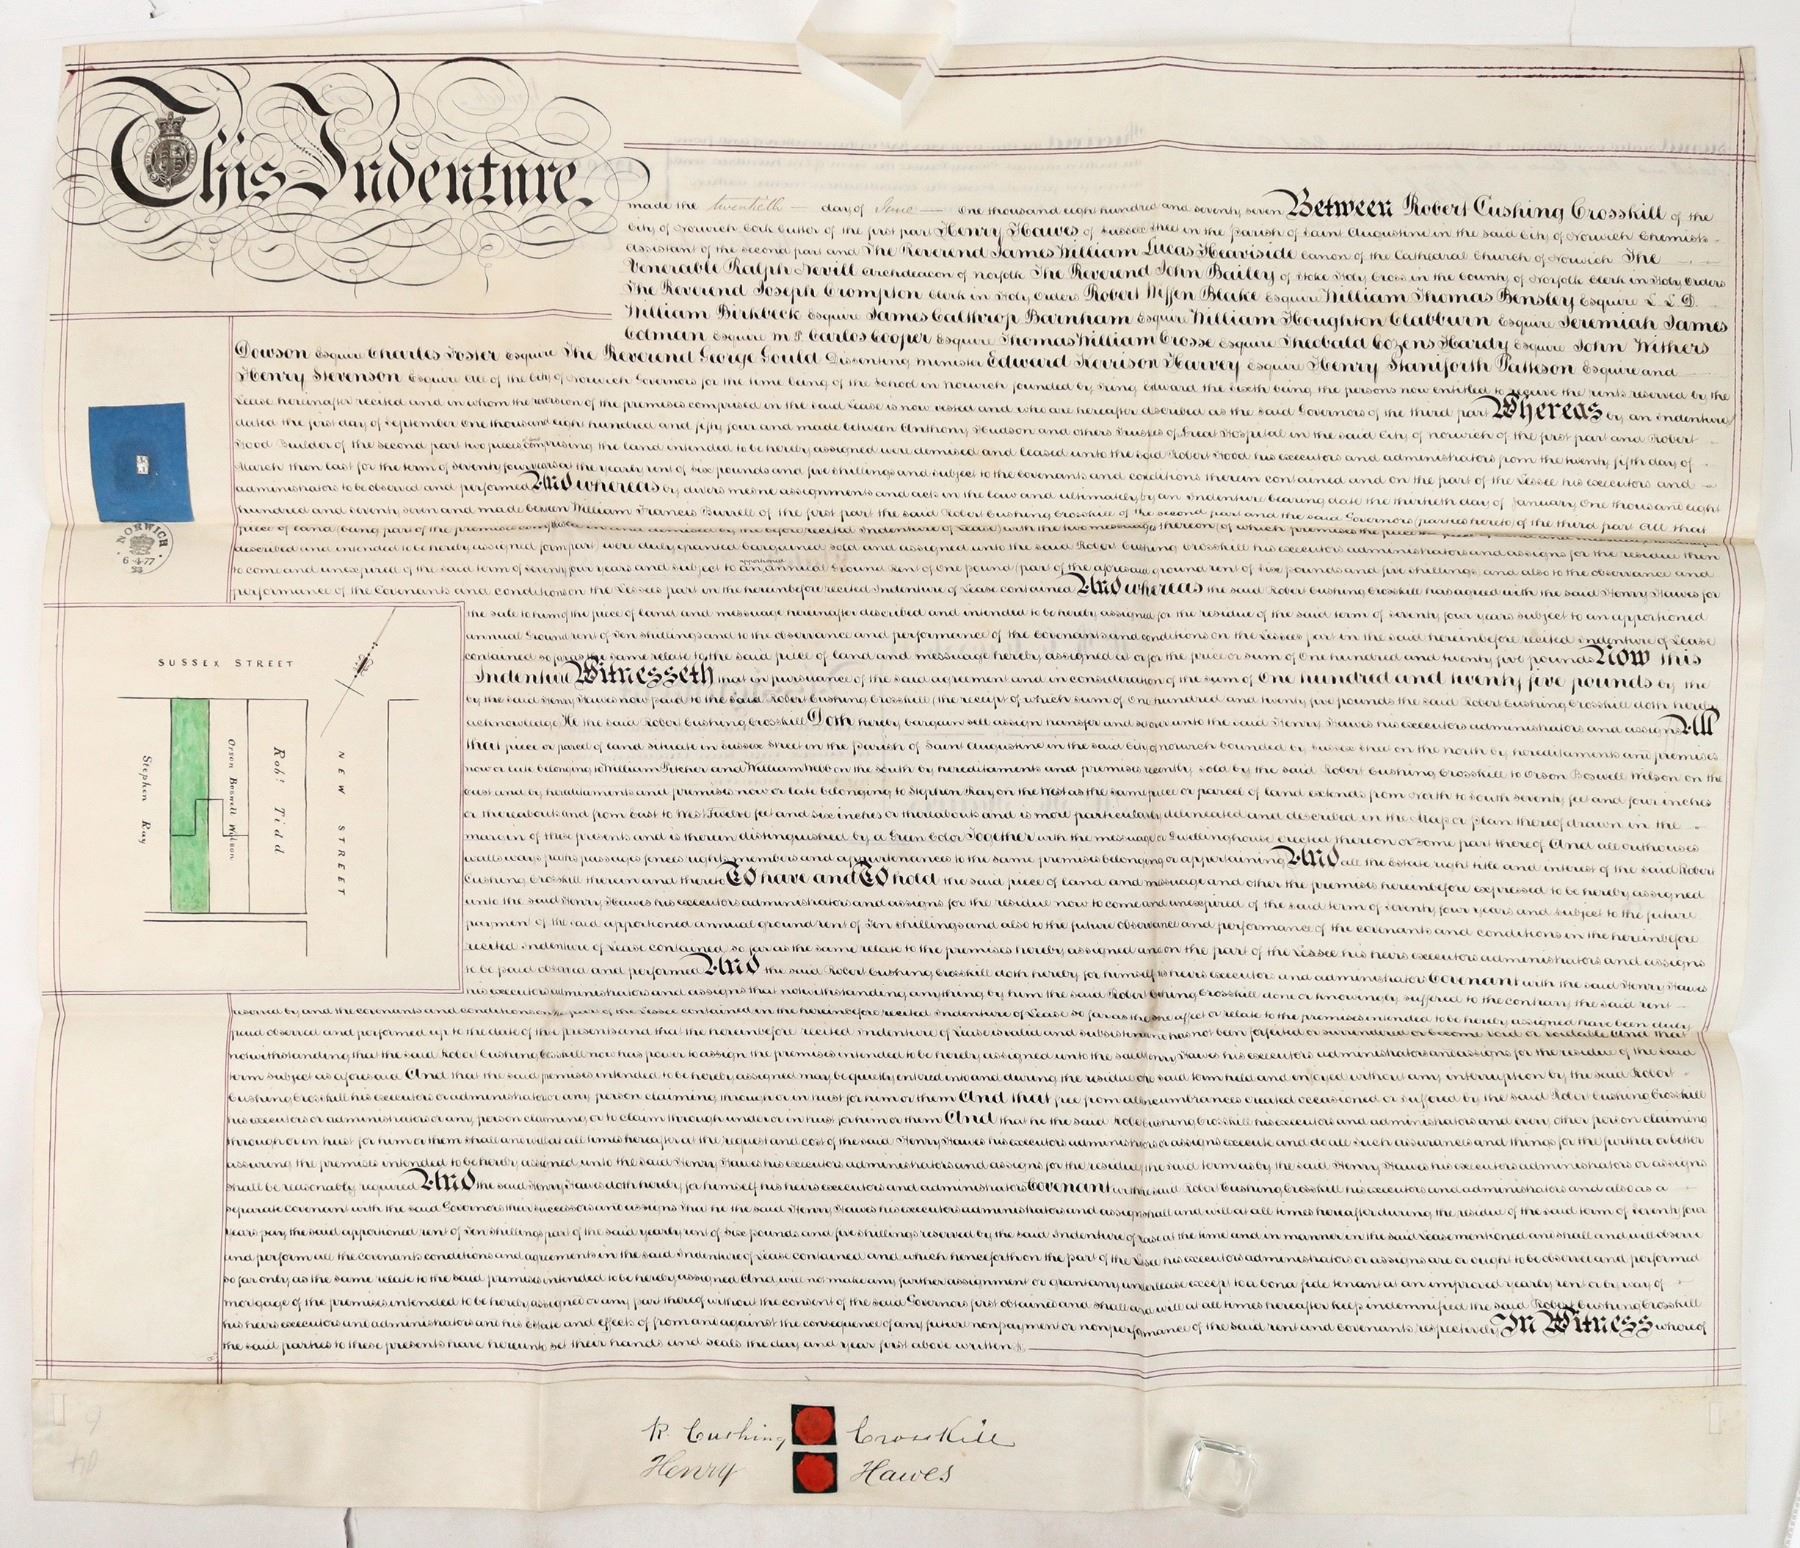 This Indenture
made the twentieth day of June One thousand eight hundred and seventy seven Between Robert Cushing Crosskill of the
City of Norwich Cork Cutter of the first part Henry Hawes of Sussex Street in the parish of Saint Augustine in the said City of Norwich Chemists
Assistant of the second part and The Reverend James William Lucas Heaviside Canon of the Cathedral Church of Norwich The
Venerable Ralph Nevill Archdeacon of Norfolk The Reverend John Bailey of Stoke Holy Cross in the County of Norfolk Clerk in Holy Orders
The Reverend Joseph Crompton Clerk in Holy Orders Robert Wiffen Blake Esquire William Thomas Bensley Esquire L L D
William Birkbeck Esquire James Calthrop Barnham Esquire William Houghton Clabburn Esquire Jeremiah James
Colman Esquire M P Carlos Cooper Esquire Thomas William Crosse Esquire Theobald Cozens Hardy Esquire John Withers
Dowson Esquire Charles Foster Esquire The Reverend George Gould Dissenting Minister Edward Kerrison Harvey Esquire Henry Staniforth Patteson Esquire and
Henry Stevenson Esquire all of the City of Norwich Governors for the time being of the School in Norwich founded by King Edward the Sixth being the persons now entitled to receive the rents reserved by the
Lease hereinafter recited and in whom the reversion of the premises comprised in the said Lease is now vested and who are hereafter described as the said Governors of the third part Whereas by an Indenture
dated the first day of September One thousand eight hundred and fifty four and made between Anthony Hudson and others Trustees of Great Hospital in the said City of Norwich of the first part and Robert
Tood Builder of the second part two pieces comprising the land intended to be hereby assigned were demised and leased unto the said Robert Tood his executors and administrators from the twenty fifth day of
March then last for the term of seventy four years at the yearly rent of Six pounds and five shillings and subject to the covenants and conditions therein contained and on the part of the Lessee his executors and
administrators to be observed and performed And whereas by divers mesne assignments and acts in the law and ultimately by an Indenture bearing date the thirtieth day of January One thousand eight
hundred and seventy seven and made between William Francis Burrell of the first part the said Robert Cushing Crosskill of the second part and the said Governors (parties hereto) of the third part All that
piece of land (being part of the premises comprised in and demised by the before recited Indenture of Lease) with the two messuages thereon (of which premises the piece
described and intended to be hereby assigned form part) were duly granted bargained sold and assigned unto the said Robert Cushing Crosskill his executors administrators and assigns for the residue then
to come and unexpired of the said term of Seventy four years and subject to an apportioned annual Ground Rent of One pound (part of the aforesaid ground rent of Six pounds and five shillings) and also to the observance and
performance of the Covenants and conditions on the Lessees part in the hereinbefore recited Indenture of Lease contained And whereas the said Robert Cushing Crosskill has agreed with the said Henry Hawes for
the sale to him of the piece of land and messuage hereinafter described and intended to be hereby assigned for the residue of the said term of seventy four years subject to an apportioned
annual Ground rent of Ten shillings and to the observance and performance of the Covenants and conditions on the Lessees part in the said hereinbefore recited Indenture of Lease
contained so far as the same relate to the said piece of land and messuage hereby assigned at or for the price or sum of One hundred and twenty five pounds Now this
Indenture Witnesseth that in pursuance of the said agreement and in consideration of the sum of One hundred and twenty five pounds by the
by the said Henry Hawes now paid to the said Robert Cushing Crosskill (the receipt of which sum of One hundred and twenty five pounds the said Robert Cushing Crosskill doth hereby
acknowledge) He the said Robert Cushing Crosskill Doth hereby bargain sell assign transfer and set over unto the said Henry Hawes his executors administrators and assigns All
that piece or parcel of land situate in Sussex Street in the parish of Saint Augustine in the said City of Norwich bounded by Sussex Street on the North by hereditaments and premises
now or late belonging to William Pitcher and William Webb on the South by hereditaments and premises recently sold by the said Robert Cushing Crosskill to Orson Boswell Wilson on the
East and by hereditaments and premises now or late belonging to Stephen Ray on the West as the same piece or parcel of land extends from North to South seventy feet and four inches
or thereabouts and from East to West Twelve feet and six inches or thereabouts and is more particularly delineated and described in the Map or plan thereof drawn in the
margin of these presents and is therein distinguished by a Green Color Together with the messuage or Dwellinghouse erected thereon or some part thereof And all outhouses
walls ways paths passages fences rights members and appurtenances to the same premises belonging or appertaining And all the Estate right title and interest of the said Robert
Cushing Crosskill therein and thereto To have and To hold the said piece of land and messuage and other the premises hereinbefore expressed to be hereby assigned
unto the said Henry Hawes his executors administrators and assigns for the residue now to come and unexpired of the said term of Seventy four years and subject to the future
payment of the said apportioned annual ground rent of Ten shillings and also to the future observance and performance of the covenants and conditions in the hereinbefore
recited Indenture of Lease contained so far as the same relate to the premises hereby assigned and on the part of the Lessee his heirs executors administrators and assigns
to be paid observed and performed And the said Robert Cushing Crosskill doth hereby for himself his heirs executors and administrators Covenant with the said Henry Hawes
his executors administrators and assigns that notwithstanding anything by him the said Robert Cushing Crosskill done or knowingly suffered to the contrary the said rent
reserved by and the covenants and conditions on the part of the Lessee contained in the hereinbefore recited Indenture of Lease so far as the same affect or relate to the premises intended to be hereby assigned have been duly
paid observed and performed up to the date of these presents and that the hereinbefore recited Indenture of Lease is valid and subsisting and has not been forfeited or surrendered or become void or voidable And that
notwithstanding that the said Robert Cushing Crosskill now has power to assign the premises intended to be hereby assigned unto the said Henry Hawes his executors administrators and assigns for the residue of the said
term subject as aforesaid And that the said premises intended to be hereby assigned may be quietly entered into and during the residue of the said term held and enjoyed without any interruption by the said Robert
Cushing Crosskill his executors or administrators or any person claiming through or in trust for him or them And that free from all incumbrances created occasioned or suffered by the said Robert Cushing Crosskill
his executors or administrators or any person claiming or to claim through under or in trust for him or them And that he the said Robert Cushing Crosskill his executors and administrators and every other person claiming
through or in trust for him or them shall and will at all times hereafter at the request and cost of the said Henry Hawes his executors administrators or assigns execute and do all such assurances and things for the further or better
assuring the premises intended to be hereby assigned unto the said Henry Hawes his executors administrators and assigns for the residue of the said term as by the said Henry Hawes his executors administrators or assigns
shall be reasonably required And the said Henry Hawes doth hereby for himself his heirs executors and administrators Covenant with the said Robert Cushing Crosskill his executors and administrators and also as a
separate Covenant with the said Governors their successors and assigns That he the said Henry Hawes his executors administrators and assigns shall and will at all times hereafter during the residue of the said term of seventy four
years pay the said apportioned rent of Ten shillings part of the said yearly rent of Six pounds and five shillings reserved by the said Indenture of Lease at the time and in manner in the said Lease mentioned and shall and will observe
and perform all the covenants conditions and agreements in the said Indenture of Lease contained and which henceforth on the part of the Lessee his executors administrators or assigns are or ought to be observed and performed
so far only as the same relate to the said premises intended to be hereby assigned And will not make any further assignment or grant any underlease except to a bona fide tenant at an improved yearly rent or by way of
mortgage of the premises intended to be hereby assigned or any part thereof without the consent of the said Governors first obtained and shall and will at all times hereafter keep indemnified the said Robert Cushing Crosskill
his heirs executors and administrators and his Estate and effects of from and against the consequence of any future nonpayment or nonperformance of the said rent and covenants respectively In Witness whereof
the said parties to these presents have hereunto set their hands and seals the day and year first above written
NORWICH
6·4·77
SUSSEX STREET
Stephen Ray
Orson Boswell Wilson
Robt Tidd
NEW STREET
R Cushing Crosskill
Henry Hawes